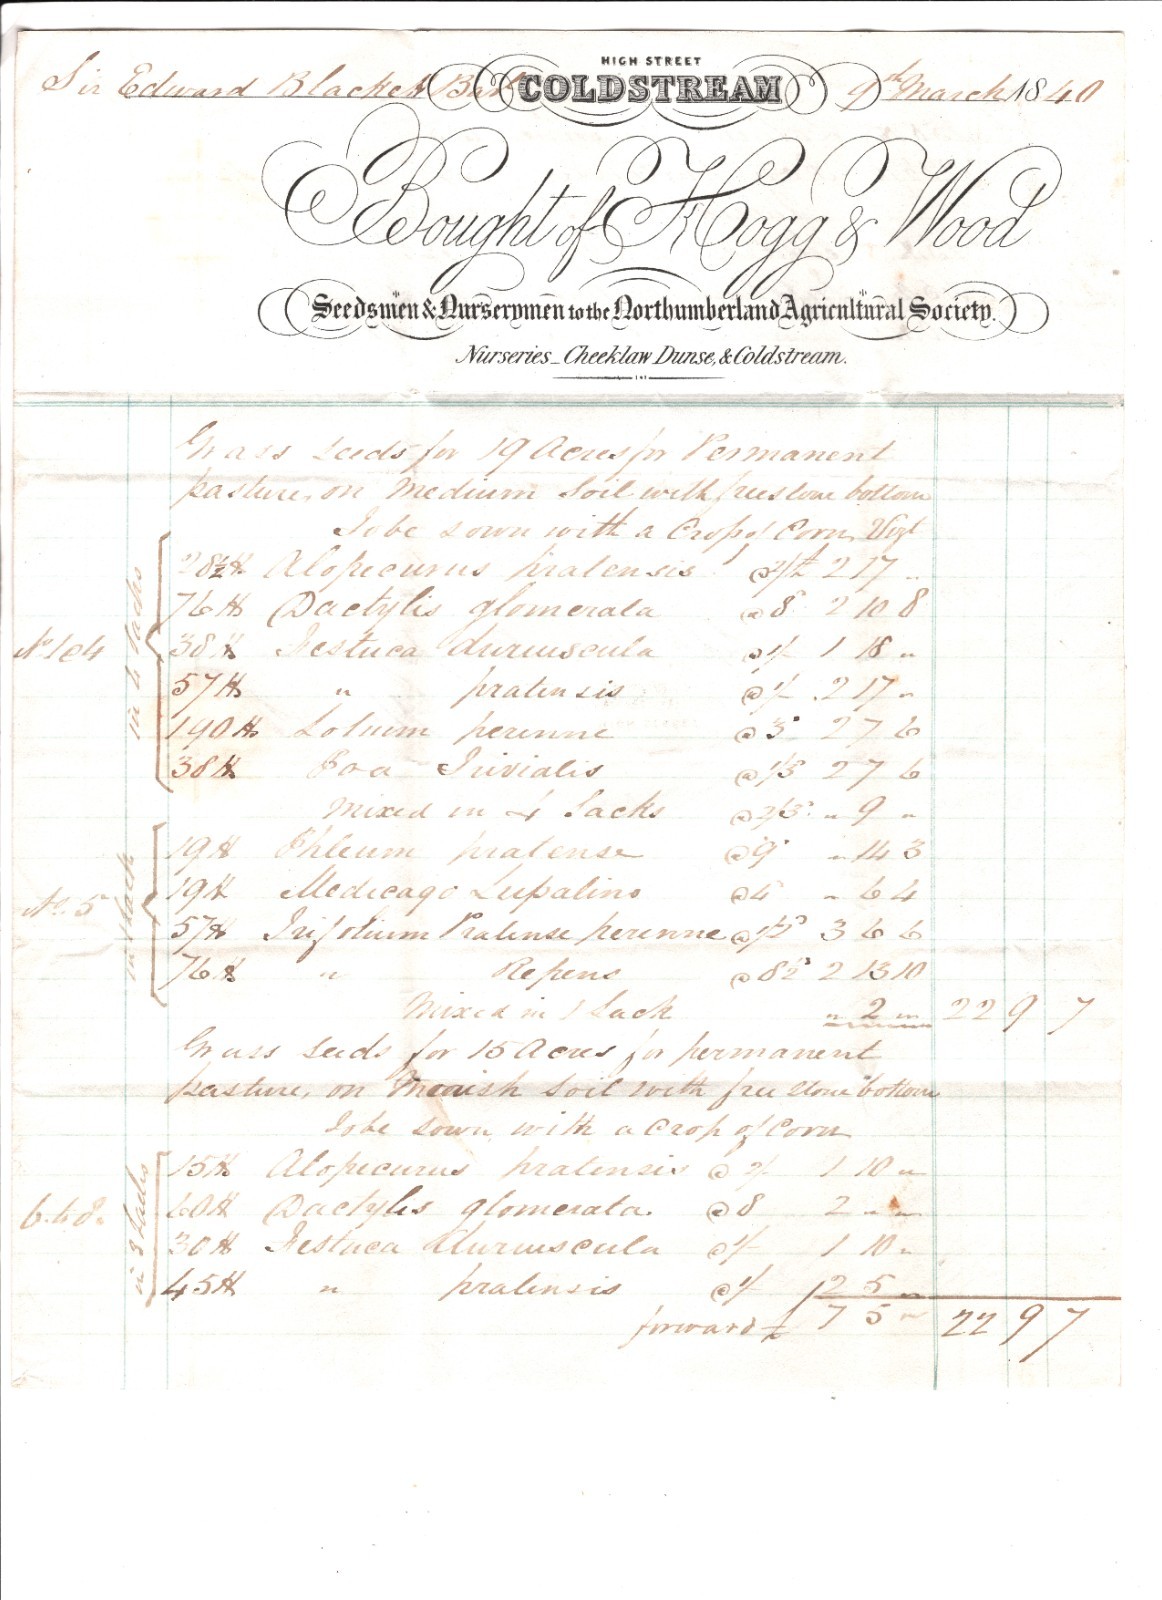 HIGH STREET
Sir Edward Blackett Bart COLDSTREAM 9th March 1840
Bought of Hogg & Wood
Seedsmen & Nurserymen to the Northumberland Agricultural Society.
Nurseries_Cheeklaw Dunse, & Coldstream.
Grass seeds for 19 Acres for Permanent
pasture, on Medium Soil with freestone bottom
To be sown with a Crop of Corn, Vizt
28½ lb Alopecurus pratensis @ 2/ £ 2 17 "
76 lb Dactylis glomerata @ 8 2 10 8
No 1 @ 4 in 4 Sacks 38 lb Festuca duriuscula @ 1/ 1 18 "
57 lb " pratensis @ 1/ 2 17 "
190 lb Lolium perenne @ 3 2 7 6
38 lb Poa Trivialis @ 1/3 2 7 6
Mixed in 4 Sacks @ 2/3 " 9 "
19 lb Phleum pratense @ 9 " 14 3
No. 5 in 1 Sack 19 lb Medicago Lupalino @ 4 " 6 4
57 lb Trifolium Pratense perenne @ 1/2 3 6 6
76 lb " Repens @ 8½ 2 13 10
Mixed in 1 Sack " 2 " 22 9 7
Grass seeds for 15 Acres for permanent
pasture, on Moorish Soil with free stone bottom
To be sown with a Crop of Corn
15 lb Alopecurus pratensis @ 2/ 1 10 "
6 to 8. in 3 Sacks 60 lb Dactylis glomerata. @ 8 2 " "
30 lb Festuca duriuscula @ 1/ 1 10 "
45 lb " pratensis @ 1/ 2 5 "
forward £ 7 5 " 22 9 7